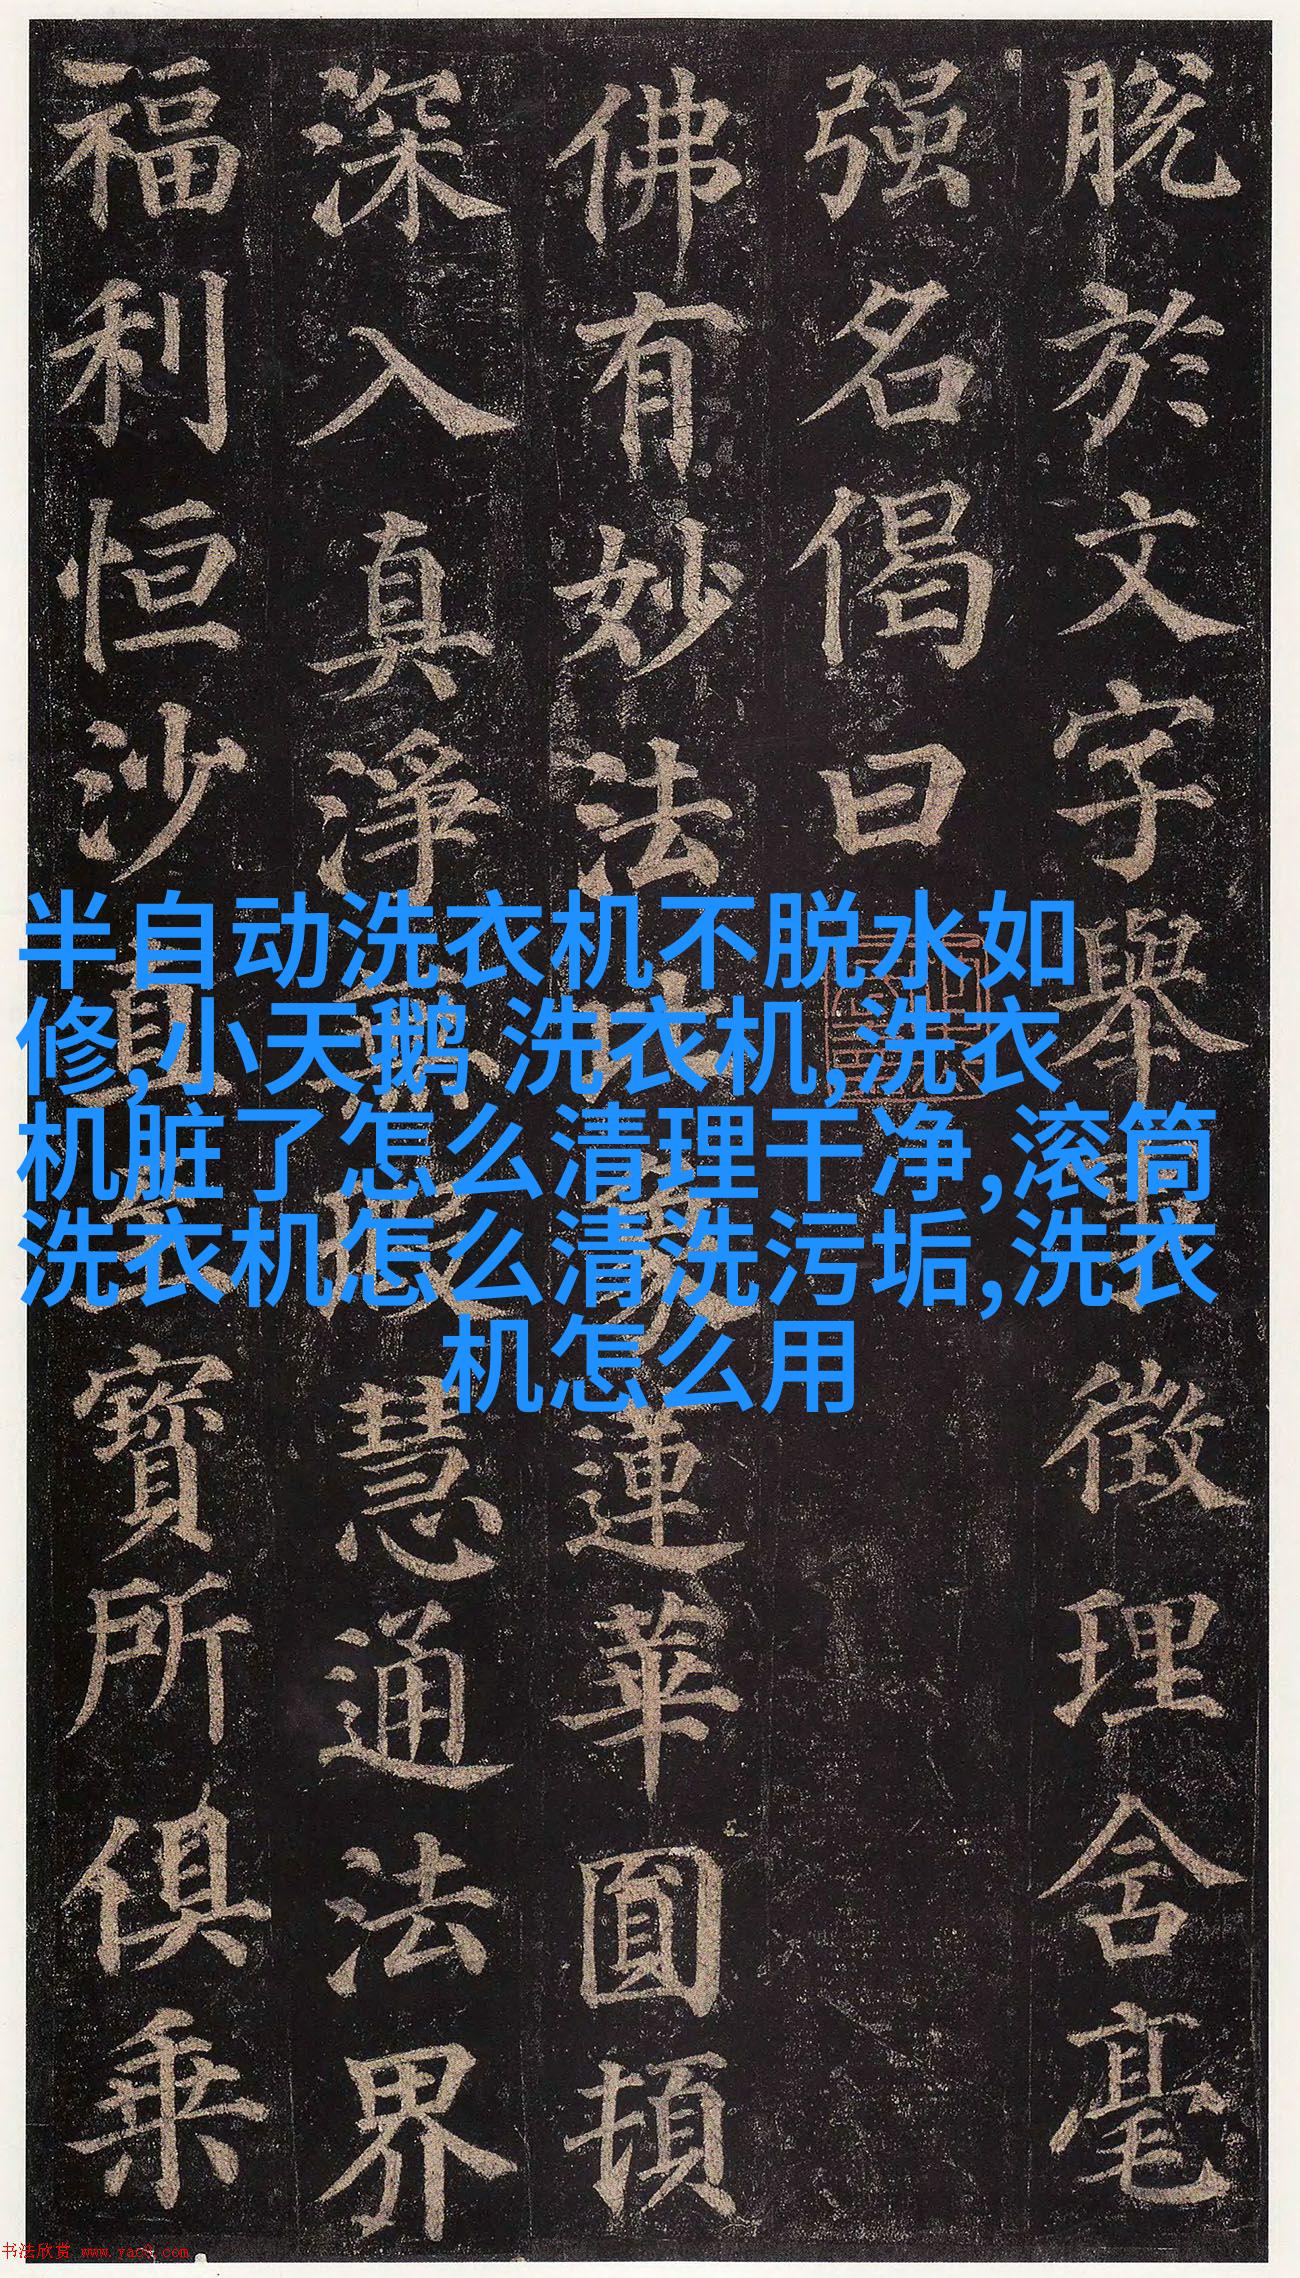 脱於文字舉徵理含毫
强名偈曰
佛有妙法蓮華圓頓
深入真淨無瑕慧通法界
福利恒沙直至寶所俱乘
半自动洗衣机不脱水如
修,小天鹅 洗衣机,洗衣
机脏了怎么清理干净,滚筒
洗衣机怎么清洗污垢,洗衣
机怎么用
书法欣赏 www.yac8.com